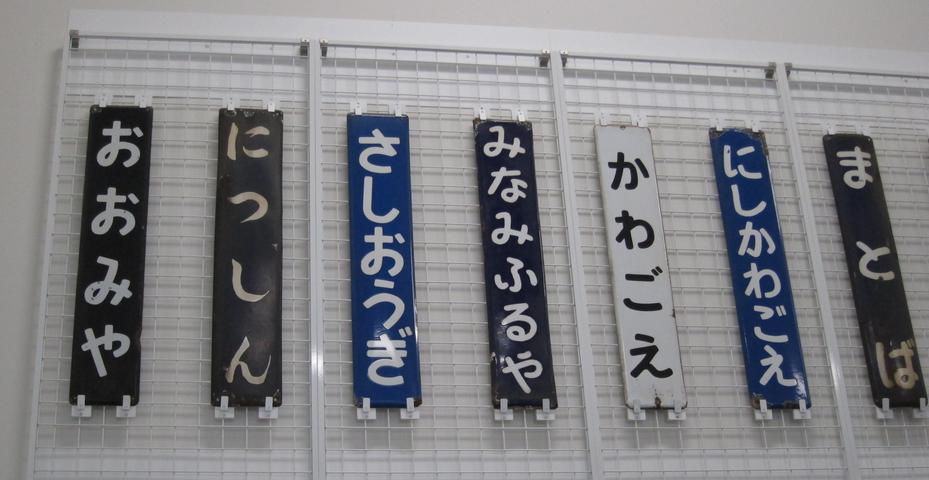 おおみや
につしん
さしおうぎ
みなみふるや
かわごえ
にしかわごえ
まとば